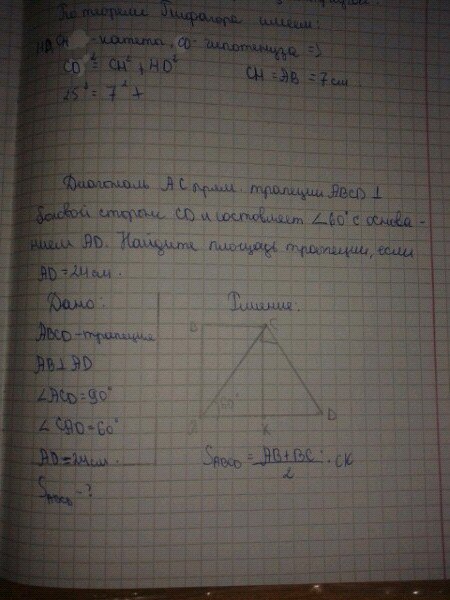 По теореме Пифагора имеем:
HD, CH - катета, CD - гипотенуза =>
CD² = CH² + HD² CH = AB = 7 см
25² = 7² +
Диагональ AC прям. трапеции ABCD ⊥
боковой стороне CD и составляет ∠60° с основа-
нием AD. Найдите площадь трапеции, если
AD = 24 см.
Дано: Решение:
ABCD - трапеция
AB ⊥ AD
∠ACD = 90°
∠CAD = 60°
AD = 24 см.
S ABCD - ?
B C
60°
K D
S ABCD = AB + BC / 2 · CK